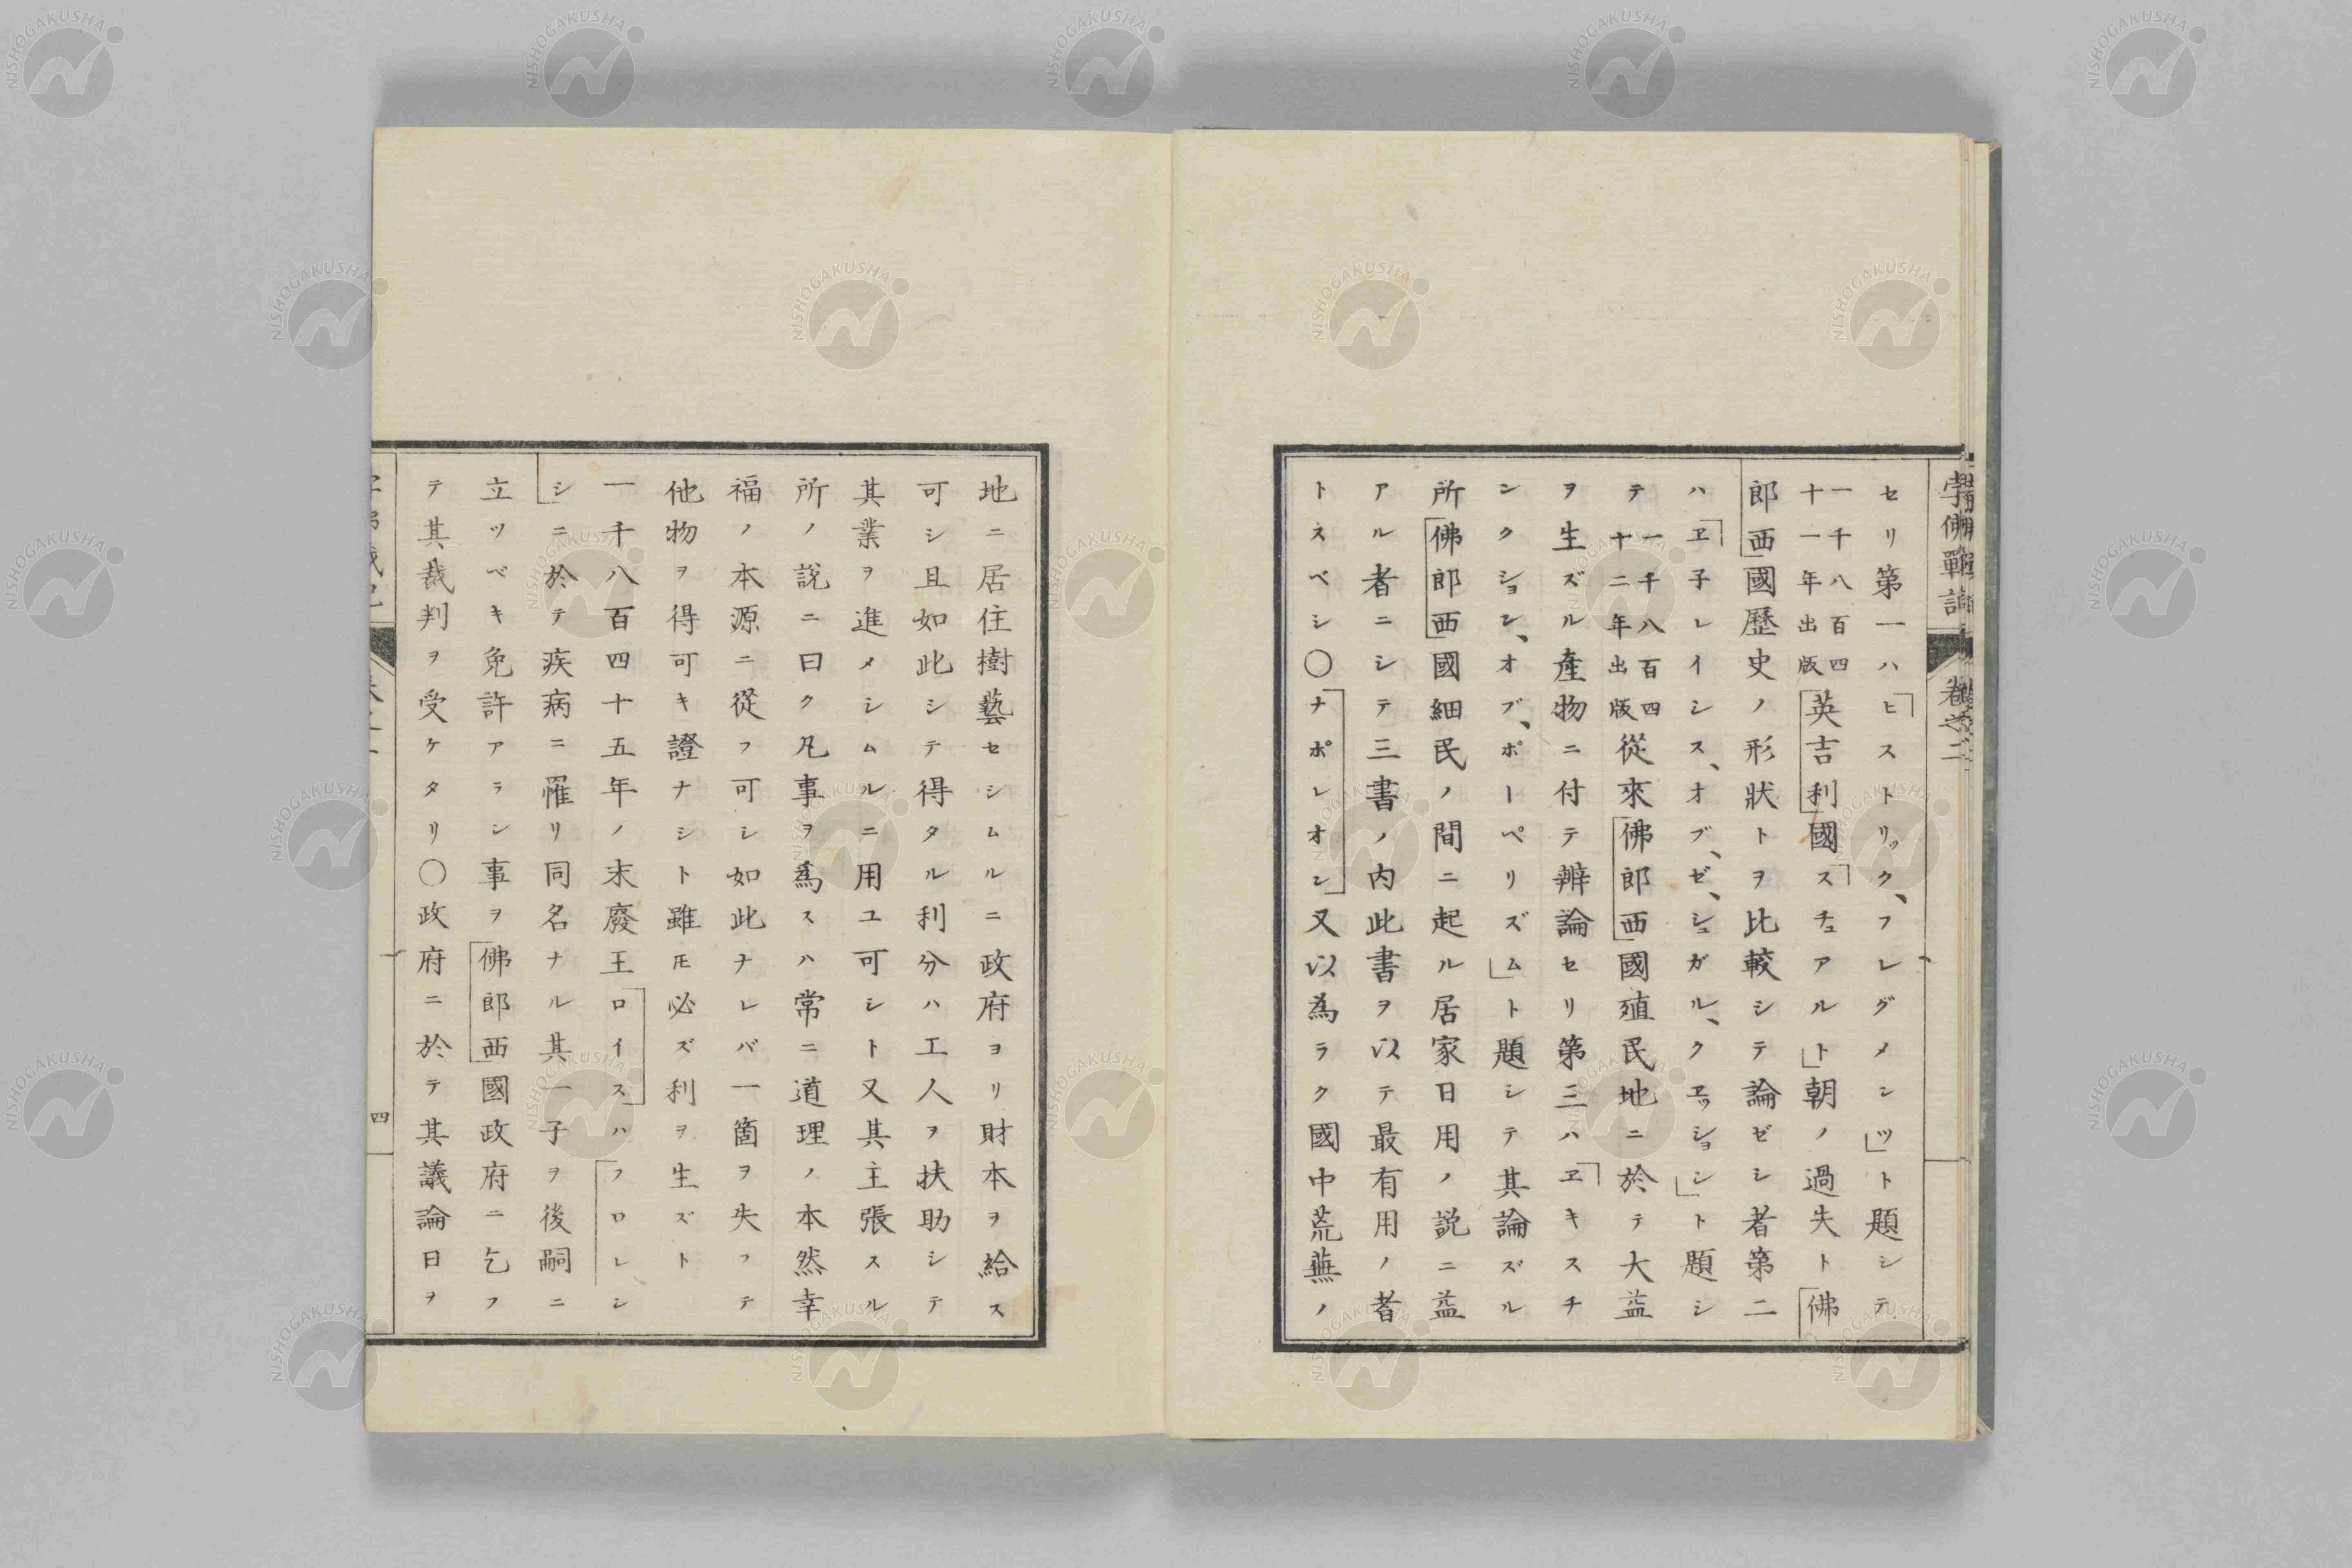 孛佛戰記
卷之二
セリ第一ハ「ヒストリック、フレグメンツ」ト題シテ
一千八百四
十一年出版
英吉利國「スチュアルト」朝ノ過失ト佛
郎西國歷史ノ形狀トヲ比較シテ論ゼシ者第二
ハ「ヱ子レイシス、オブ、ゼ、シュガル、クヱッション」ト題シ
テ
一千八百四
十二年出版
從來佛郎西國殖民地ニ於テ大益
ヲ生ズル產物ニ付テ辨論セリ第三ハ「ヱキスチ
ンクション、オブ、ポーペリズム」ト題シテ其論ズル
所佛郎西國細民ノ間ニ起ル居家日用ノ説ニ益
アル者ニシテ三書ノ内此書ヲ以テ最有用ノ者
トスベシ〇「ナポレオン」又以為ラク國中荒蕪ノ
地ニ居住樹藝セシムルニ政府ヨリ財本ヲ給ス
可シ且如此シテ得タル利分ハ工人ヲ扶助シテ
其業ヲ進メシムルニ用ユ可シト又其主張スル
所ノ説ニ曰ク凡事ヲ為スハ常ニ道理ノ本然幸
福ノ本源ニ從フ可シ如此ナレバ一箇ヲ失フテ
他物ヲ得可キ證ナシト雖𪜈必ズ利ヲ生ズト
一千八百四十五年ノ末廢王「ロイス」ハ「フロレン
シ」ニ於テ疾病ニ罹リ同名ナル其一子ヲ後嗣ニ
立ツベキ免許アラン事ヲ佛郎西國政府ニ乞フ
テ其裁判ヲ受ケタリ〇政府ニ於テ其議論日ヲ
四
NISHOGAKUSHA